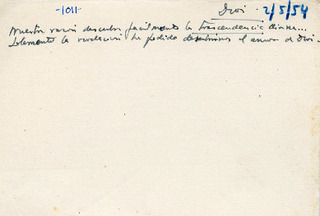 -1011-
Dios 2/5/54
Nuestra razón descubre fácilmente la trascendencia divina...
Solamente la revelación ha podido descubrirnos el amor de Dios.